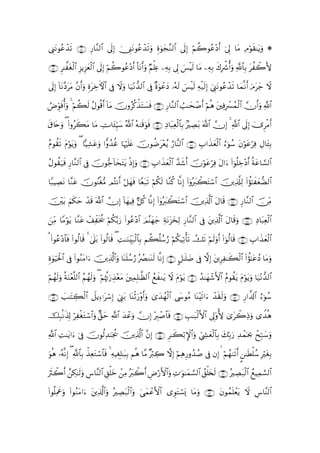 ۞ وَيَٰقَوْمِ مَا لِىٓ أَدْعُوكُمْ إِلَى ٱلنَّجَوٰةِ وَتَدْعُونَنِىٓ إِلَى ٱلنَّارِ ﴿٤١﴾ تَدْعُونَنِى
لِأَكْفُرَ بِٱللَّهِ وَأُشْرِكَ بِهِۦ مَا لَيْسَ لِى بِهِۦ عِلْمٌ وَأَنَا۠ أَدْعُوكُمْ إِلَى ٱلْعَزِيزِ ٱلْغَفَّٰرِ ﴿٤٢﴾
لَا جَرَمَ أَنَّمَا تَدْعُونَنِىٓ إِلَيْهِ لَيْسَ لَهُۥ دَعْوَةٌ فِى ٱلدُّنْيَا وَلَا فِى ٱلْءَاخِرَةِ وَأَنَّ مَرَدَّنَآ إِلَى
ٱللَّهِ وَأَنَّ ٱلْمُسْرِفِينَ هُمْ أَصْحَٰبُ ٱلنَّارِ ﴿٤٣﴾ فَسَتَذْكُرُونَ مَآ أَقُولُ لَكُمْ ۚ وَأُفَوِّضُ
أَمْرِىٓ إِلَى ٱللَّهِ ۚ إِنَّ ٱللَّهَ بَصِيرٌۢ بِٱلْعِبَادِ ﴿٤٤﴾ فَوَقَىٰهُ ٱللَّهُ سَيِّـَٔاتِ مَا مَكَرُوا۟ ۖ وَحَاقَ
بِـَٔالِ فِرْعَوْنَ سُوٓءُ ٱلْعَذَابِ ﴿٤٥﴾ ٱلنَّارُ يُعْرَضُونَ عَلَيْهَا غُدُوًّا وَعَشِيًّا ۖ وَيَوْمَ تَقُومُ
ٱلسَّاعَةُ أَدْخِلُوٓا۟ ءَالَ فِرْعَوْنَ أَشَدَّ ٱلْعَذَابِ ﴿٤٦﴾ وَإِذْ يَتَحَآجُّونَ فِى ٱلنَّارِ فَيَقُولُ
ٱلضُّعَفَٰٓؤُا۟ لِلَّذِينَ ٱسْتَكْبَرُوٓا۟ إِنَّا كُنَّا لَكُمْ تَبَعًا فَهَلْ أَنتُم مُّغْنُونَ عَنَّا نَصِيبًا
مِّنَ ٱلنَّارِ ﴿٤٧﴾ قَالَ ٱلَّذِينَ ٱسْتَكْبَرُوٓا۟ إِنَّا كُلٌّ فِيهَآ إِنَّ ٱللَّهَ قَدْ حَكَمَ بَيْنَ
ٱلْعِبَادِ ﴿٤٨﴾ وَقَالَ ٱلَّذِينَ فِى ٱلنَّارِ لِخَزَنَةِ جَهَنَّمَ ٱدْعُوا۟ رَبَّكُمْ يُخَفِّفْ عَنَّا يَوْمًا مِّنَ
ٱلْعَذَابِ ﴿٤٩﴾ قَالُوٓا۟ أَوَلَمْ تَكُ تَأْتِيكُمْ رُسُلُكُم بِٱلْبَيِّنَٰتِ ۖ قَالُوا۟ بَلَىٰ ۚ قَالُوا۟ فَٱدْعُوا۟ ۗ
وَمَا دُعَٰٓؤُا۟ ٱلْكَٰفِرِينَ إِلَّا فِى ضَلَٰلٍ ﴿٥٠﴾ إِنَّا لَنَنصُرُ رُسُلَنَا وَٱلَّذِينَ ءَامَنُوا۟ فِى ٱلْحَيَوٰةِ
ٱلدُّنْيَا وَيَوْمَ يَقُومُ ٱلْأَشْهَٰدُ ﴿٥١﴾ يَوْمَ لَا يَنفَعُ ٱلظَّٰلِمِينَ مَعْذِرَتُهُمْ ۖ وَلَهُمُ ٱللَّعْنَةُ وَلَهُمْ
سُوٓءُ ٱلدَّارِ ﴿٥٢﴾ وَلَقَدْ ءَاتَيْنَا مُوسَى ٱلْهُدَىٰ وَأَوْرَثْنَا بَنِىٓ إِسْرَٰٓءِيلَ ٱلْكِتَٰبَ ﴿٥٣﴾
هُدًى وَذِكْرَىٰ لِأُو۟لِى ٱلْأَلْبَٰبِ ﴿٥٤﴾ فَٱصْبِرْ إِنَّ وَعْدَ ٱللَّهِ حَقٌّ وَٱسْتَغْفِرْ لِذَنۢبِكَ
وَسَبِّحْ بِحَمْدِ رَبِّكَ بِٱلْعَشِىِّ وَٱلْإِبْكَٰرِ ﴿٥٥﴾ إِنَّ ٱلَّذِينَ يُجَٰدِلُونَ فِىٓ ءَايَٰتِ ٱللَّهِ
بِغَيْرِ سُلْطَٰنٍ أَتَىٰهُمْ ۙ إِن فِى صُدُورِهِمْ إِلَّا كِبْرٌ مَّا هُم بِبَٰلِغِيهِ ۚ فَٱسْتَعِذْ بِٱللَّهِ ۖ إِنَّهُۥ هُوَ
ٱلسَّمِيعُ ٱلْبَصِيرُ ﴿٥٦﴾ لَخَلْقُ ٱلسَّمَٰوَٰتِ وَٱلْأَرْضِ أَكْبَرُ مِنْ خَلْقِ ٱلنَّاسِ وَلَٰكِنَّ أَكْثَرَ
ٱلنَّاسِ لَا يَعْلَمُونَ ﴿٥٧﴾ وَمَا يَسْتَوِى ٱلْأَعْمَىٰ وَٱلْبَصِيرُ وَٱلَّذِينَ ءَامَنُوا۟ وَعَمِلُوا۟